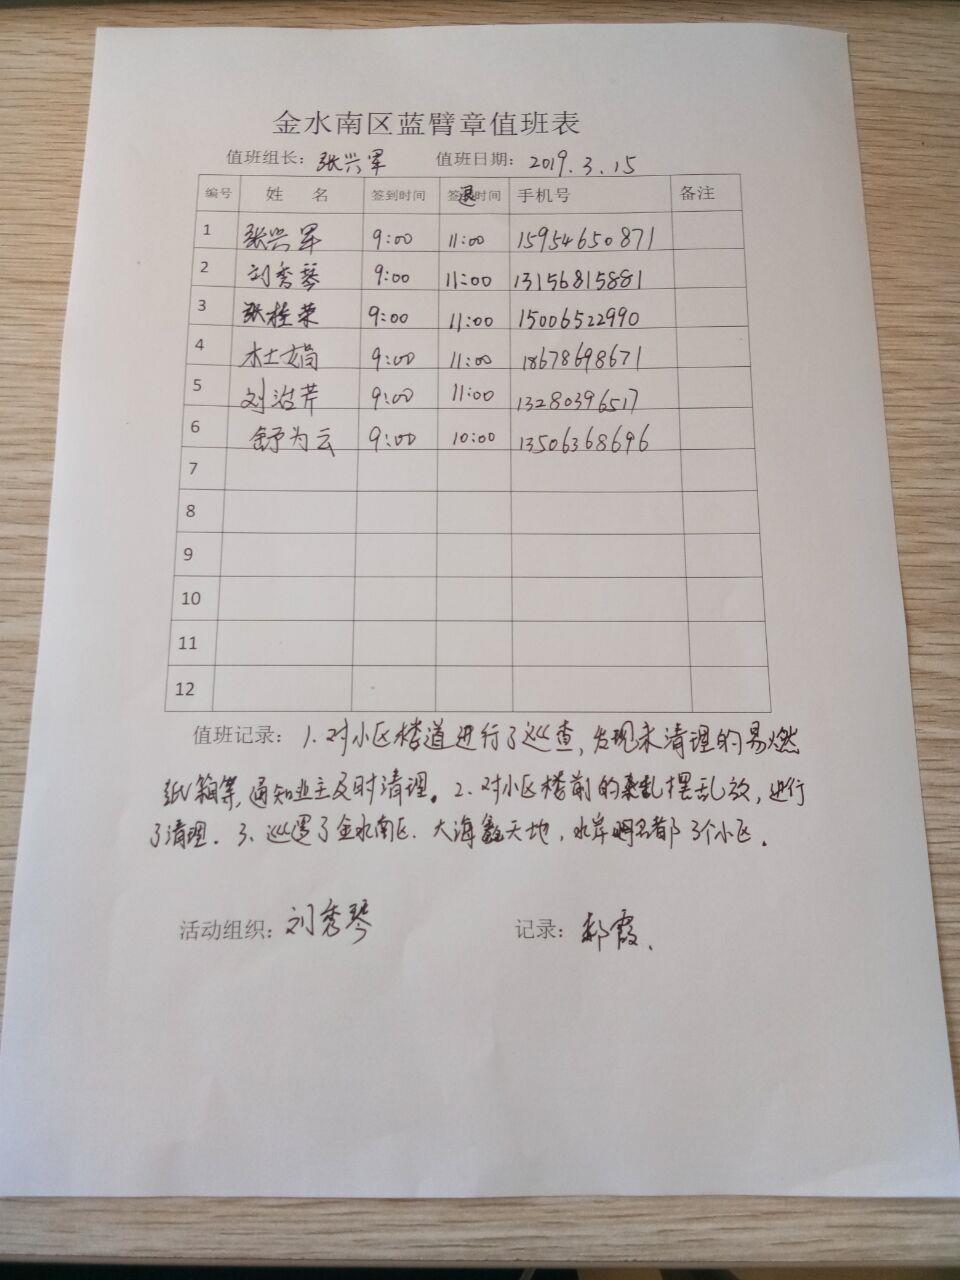 金水南区蓝臂章值班表
值班组长：张兴军 值班日期：2019.3.15
编号 姓 名 签到时间 签退时间 手机号 备注
1 张兴军 9:00 11:00 15954650871
2 刘秀琴 9:00 11:00 13156815881
3 张桂荣 9:00 11:00 15006522990
4 杜娟 9:00 11:00 18678698671
5 刘洁芹 9:00 11:00 13280396517
6 舒为云 9:00 10:00 13506368696
7
8
9
10
11
12
值班记录：1.对小区楼道进行了巡查，发现未清理的易燃
纸箱等，通知业主及时清理。2.对小区楼前的乱摆乱放，进行
了清理.3、巡逻了金水南区.大海鑫天地，水岸明名都3个小区.
活动组织：刘秀琴 记录：郝霞.